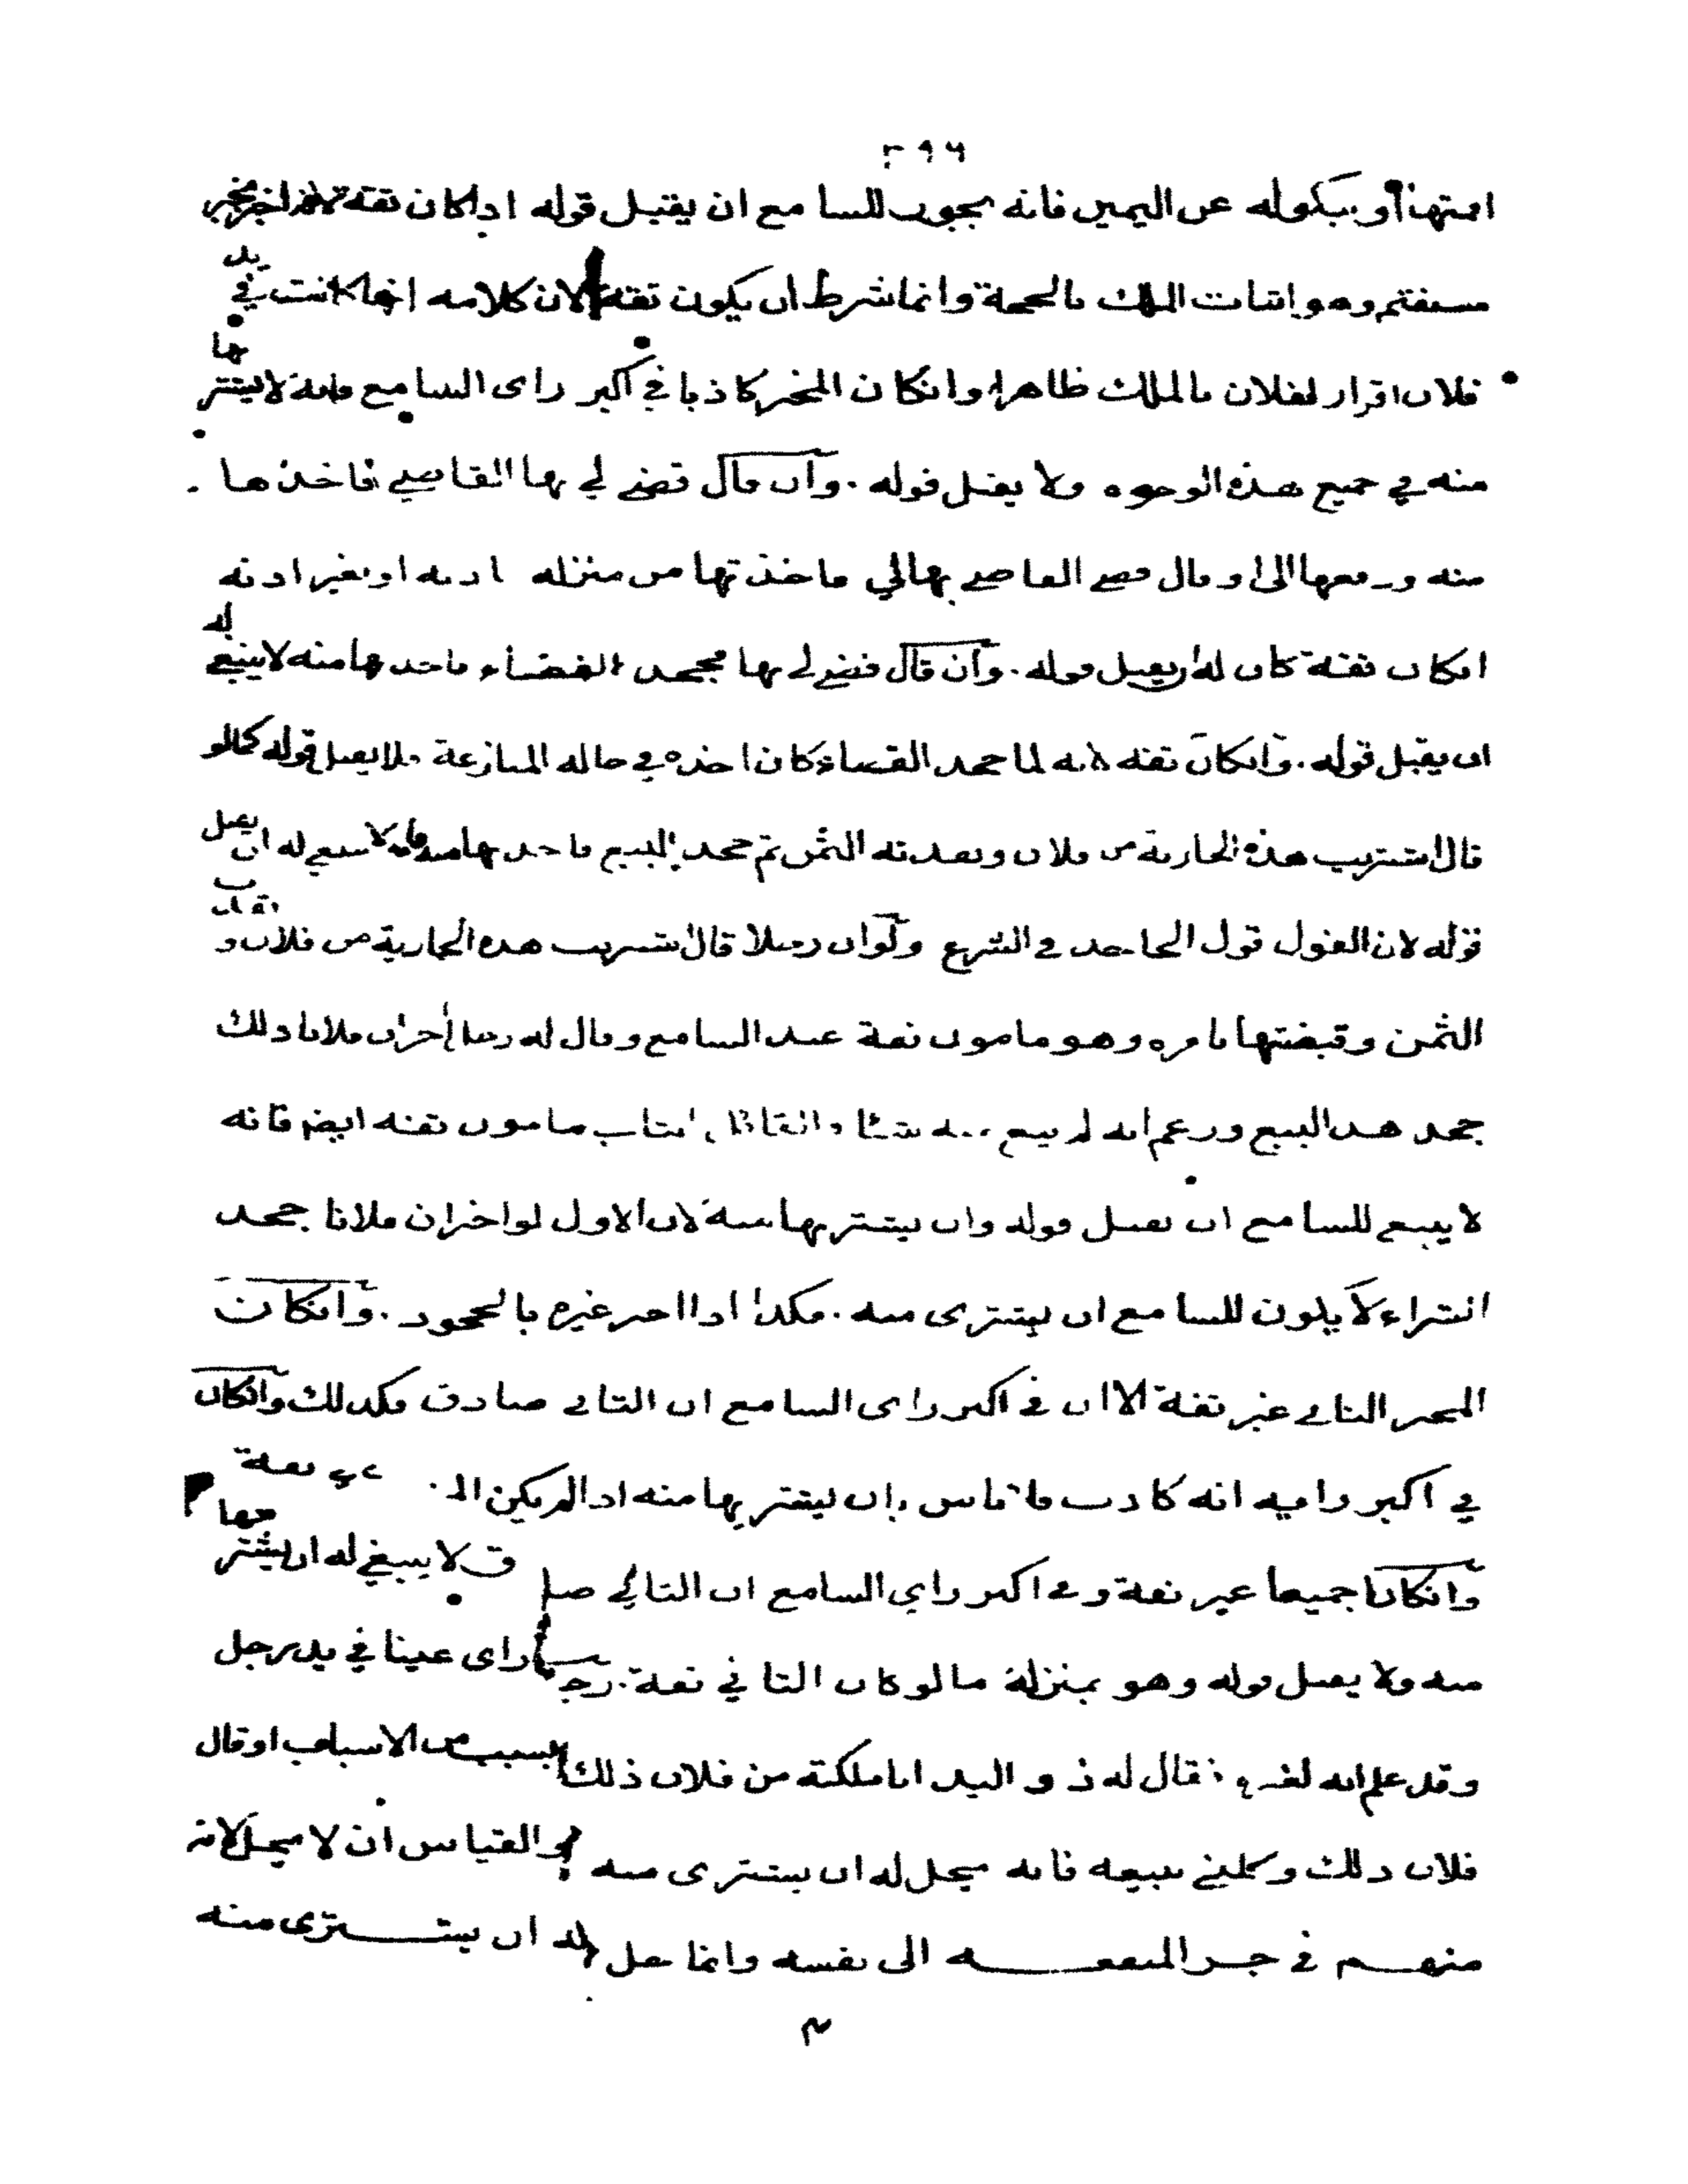 ٢٩٦
اقمتها أو بنكوله عن اليمين فانه يجوز للسامع ان يقبل قوله اذا كان ثقة لانه اخبر بخبر
مستقيم وهو اثبات الملك بالحجة وانما شرط ان يكون ثقة لان كلامه انها كانت في يد
فلان اقرار لفلان بالملك ظاهرا وانكان المخبر كاذبا في اكبر راى السامع فانه لا يشتريها
منه في جميع هذه الوجوه ولا يقبل قوله . وان قال قضى لي بها القاضي فاخذها
منه ودفعها الى او قال قضى القاضي بها لي فاخذتها من منزله باذنه او بغير اذنه
انكان ثقة كان له ان يقبل قوله . وان قال قضى لي بها فجحد القضاء فاخذتها منه لا ينبغي له
ان يقبل قوله . وانكان ثقة لانه لما جحد القضاء كان اخذه في حاله المنازعة فلا يقبل قوله كما لو
قال اشتريت هذه الجارية من فلان ونقدته الثمن ثم جحد البيع فاخذتها منه فانه لا ينبغي له ان يقبل
قوله لان القول قول الجاحد في الشرع ولو ان رجلا قال اشتريت هذه الجارية من فلان ونقدت
الثمن وقبضتها بامره وهو مامون ثقة عند السامع وقال له رجل اخر ان فلانا ذلك
جحد هذا البيع وزعم انه لم يبع منه شئا والقائل الثاني مامون ثقة ايضا فانه
لا ينبغي للسامع ان يقبل قوله وان يشتريها منه لان الاول لو اخبر ان فلانا جحد
الشراء لا يكون للسامع ان يشترى منه . فكذا اذا اخبر غيره بالجحود . وانكان
المخبر الثاني غير ثقة الا ان في اكبر راى السامع ان الثاني صادق فكذلك وانكان
في اكبر رايه انه كاذب فلا باس بان يشتريها منه اذا لم يكن ثقة
وانكانا جميعا غير ثقة وفي اكبر راي السامع ان الثاني صادق لا ينبغي له ان يشتريها
منه ولا يقبل قوله وهو بمنزلة ما لو كان الثاني ثقة . رجل راى عينا في يد رجل
وقد علم انه لغيره فقال له ذو اليد انا ملكته من فلان ذلك بسبب من الاسباب او قال
فلان ذلك وكلني ببيعه فانه يحل له ان يشترى منه والقياس ان لا يحل لانه
متهم في جر المنفعة الى نفسه وانما حل له ان يشترى منه